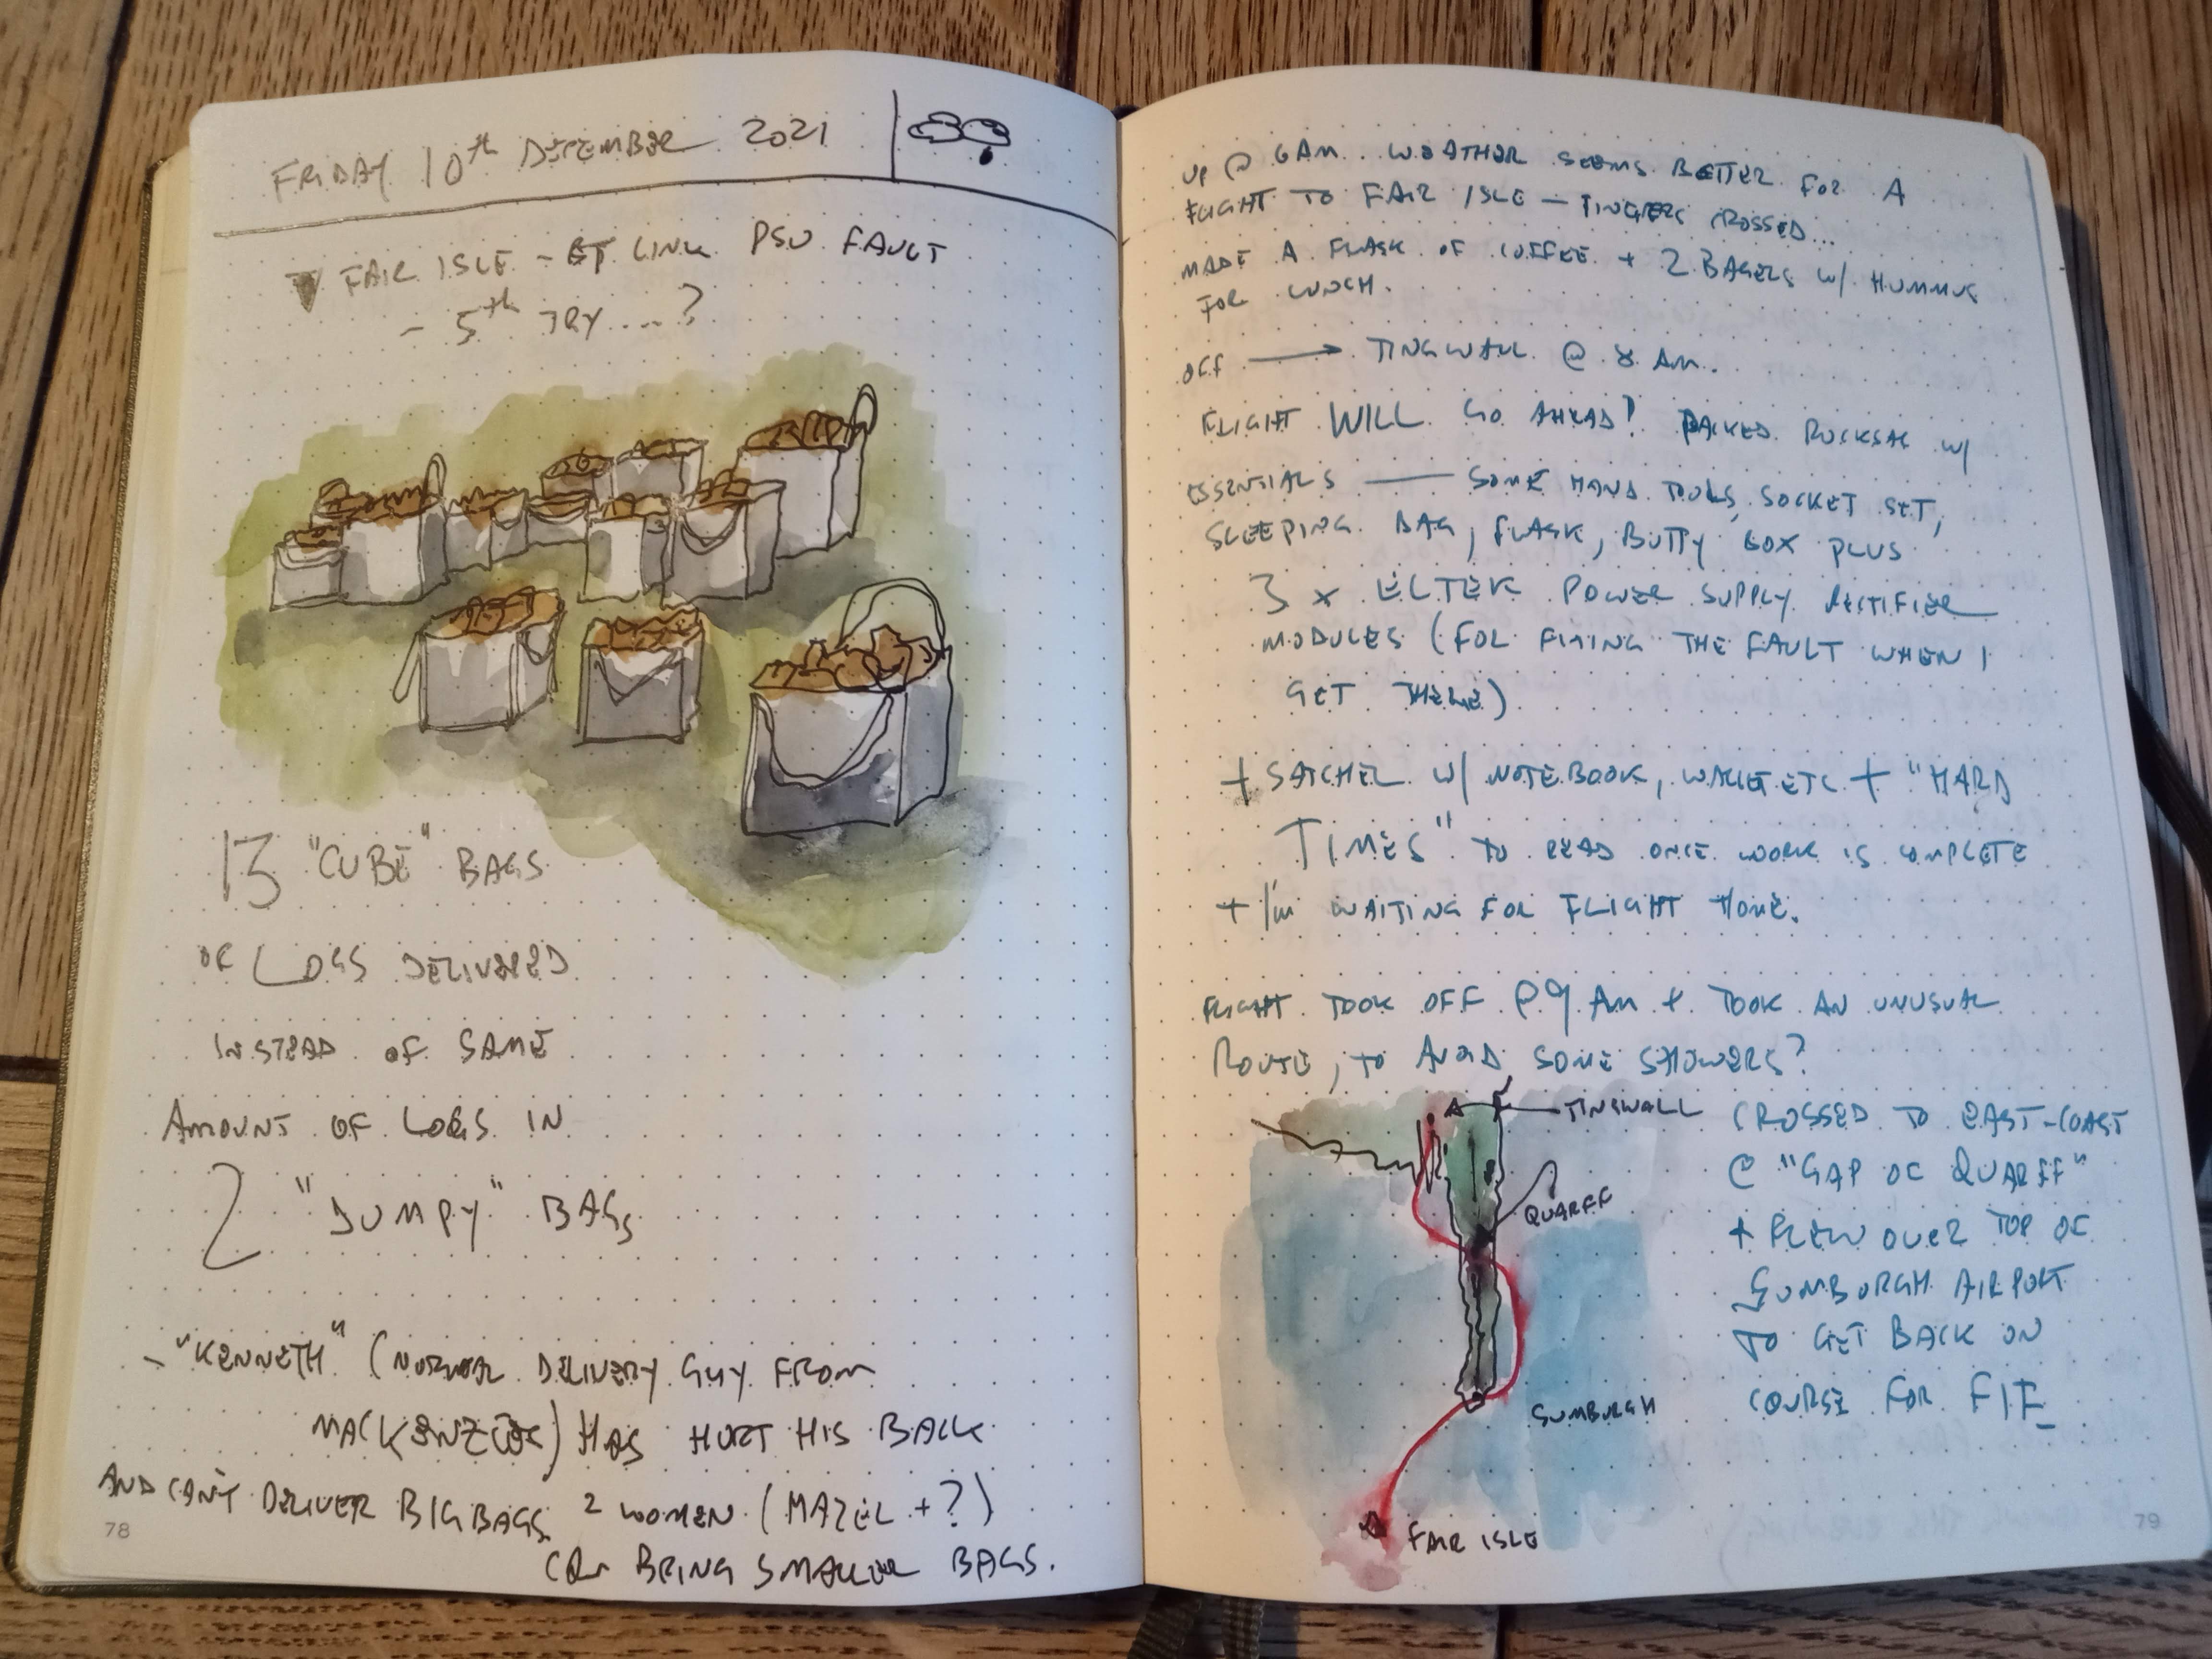 FRIDAY 10th DECEMBER 2021
FAIR ISLE - BT LINK PSU FAULT
- 5th TRY....?
13 "CUBE" BAGS
OF LOGS DELIVERED
INSTEAD OF SAME
AMOUNT OF LOGS IN
2 "DUMPY" BAGS
- "KENNETH" (NORMAL DELIVERY GUY FROM
MACKENZIES) HAS HURT HIS BACK
AND CAN'T DELIVER BIG BAGS. 2 WOMEN (HAZEL + ?)
CAN BRING SMALLER BAGS.
78
UP @ 6AM. WEATHER SEEMS BETTER FOR A
FLIGHT TO FAIR ISLE - FINGERS CROSSED...
MADE A FLASK OF COFFEE + 2 BAGELS W/ HUMMUS
FOR LUNCH.
OFF → TINGWALL @ 8 AM.
FLIGHT WILL GO AHEAD! PACKED RUCKSAC W/
ESSENTIALS — SOME HAND TOOLS, SOCKET SET,
SLEEPING BAG, FLASK, BUTTY BOX PLUS
3 x ELTEK POWER SUPPLY RECTIFIER
MODULES (FOR FIXING THE FAULT WHEN I
GET THERE)
+ SATCHEL W/ NOTEBOOK, WALLET ETC + "HARD
TIMES" TO READ ONCE WORK IS COMPLETE
+ I'M WAITING FOR FLIGHT HOME.
FLIGHT TOOK OFF @ 9 AM + TOOK AN UNUSUAL
ROUTE, TO AVOID SOME SHOWERS?
TINGWALL
QUARFF
SUMBURGH
FAIR ISLE
CROSSED TO EAST-COAST
@ "GAP OF QUARFF"
+ FLEW OVER TOP OF
SUMBURGH AIRPORT
TO GET BACK ON
COURSE FOR FIE
79